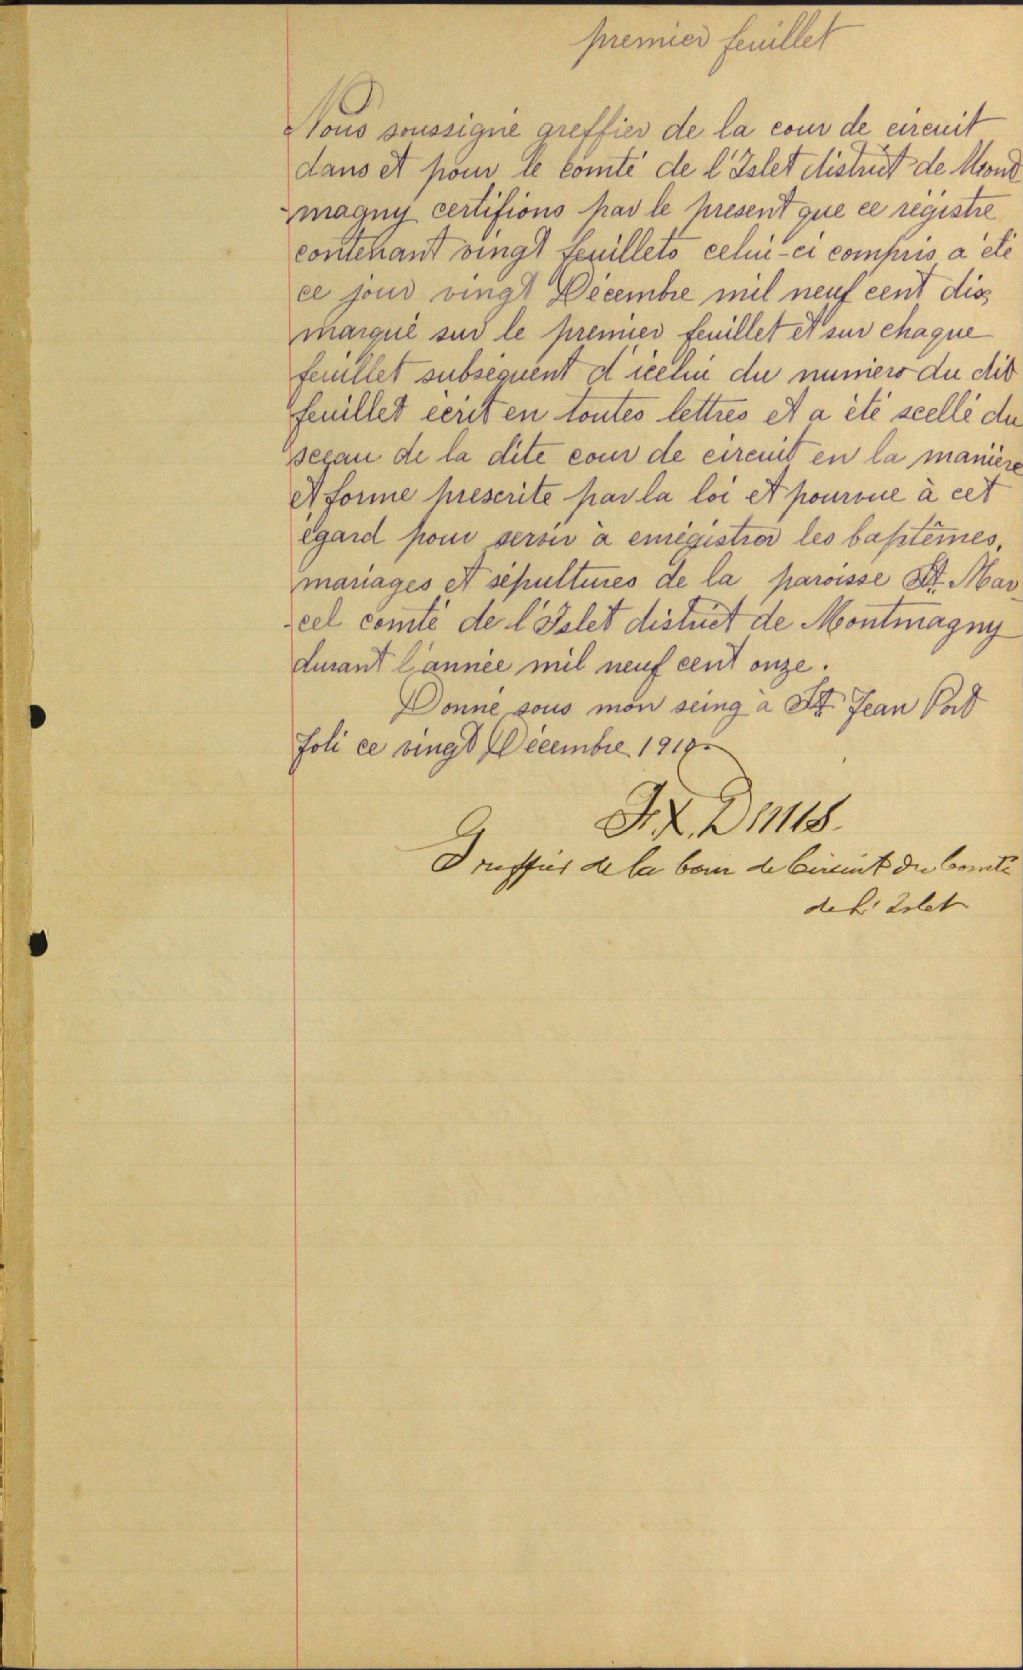 premier feuillet
Nous soussigné greffier de la cour de circuit
dans et pour le comté de l'Islet district de Mont
-magny certifions par le present que ce régistre
contenant vingt feuillets celui-ci compris a été
ce jour vingt Décembre mil neuf cent dix,
marqué sur le premier feuillet et sur chaque
feuillet subséquent d'icelui du numéro du dit
feuillet écrit en toutes lettres et a été scellé du
sceau de la dite cour de circuit en la manière
et forme prescrite par la loi et pourvue à cet
égard pour servir à enrégistrer les baptêmes,
mariages et sépultures de la paroisse St. Mar-
-cel comté de l'Islet district de Montmagny
durant l'année mil neuf cent onze.
Donné sous mon seing à St Jean Port
Joli ce vingt Décembre 1910.
F. X.
Greffier de la Cour de Circuit du Comté
de L'Islet